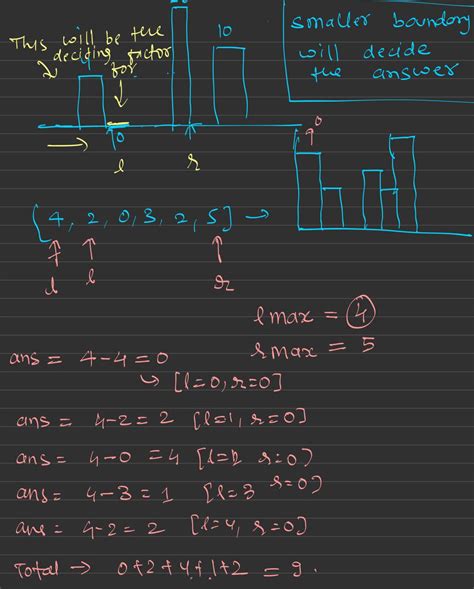 This will be the
deciding factor
for
4
0
l
r
10
smaller boundary
will decide
the answer
0
[4, 2, 0, 3, 2, 5] →
l
l
r
lmax = 4
rmax = 5
ans = 4-4=0
↳ [l=0, r=0]
ans = 4-2=2 [l=1, r=0]
ans = 4-0 =4 [l=2 r=0)
ans= 4-3=1 [l=3 r=0)
ans= 4-2=2 [l=4, r=0]
Total → 0+2+4+1+2 = 9.